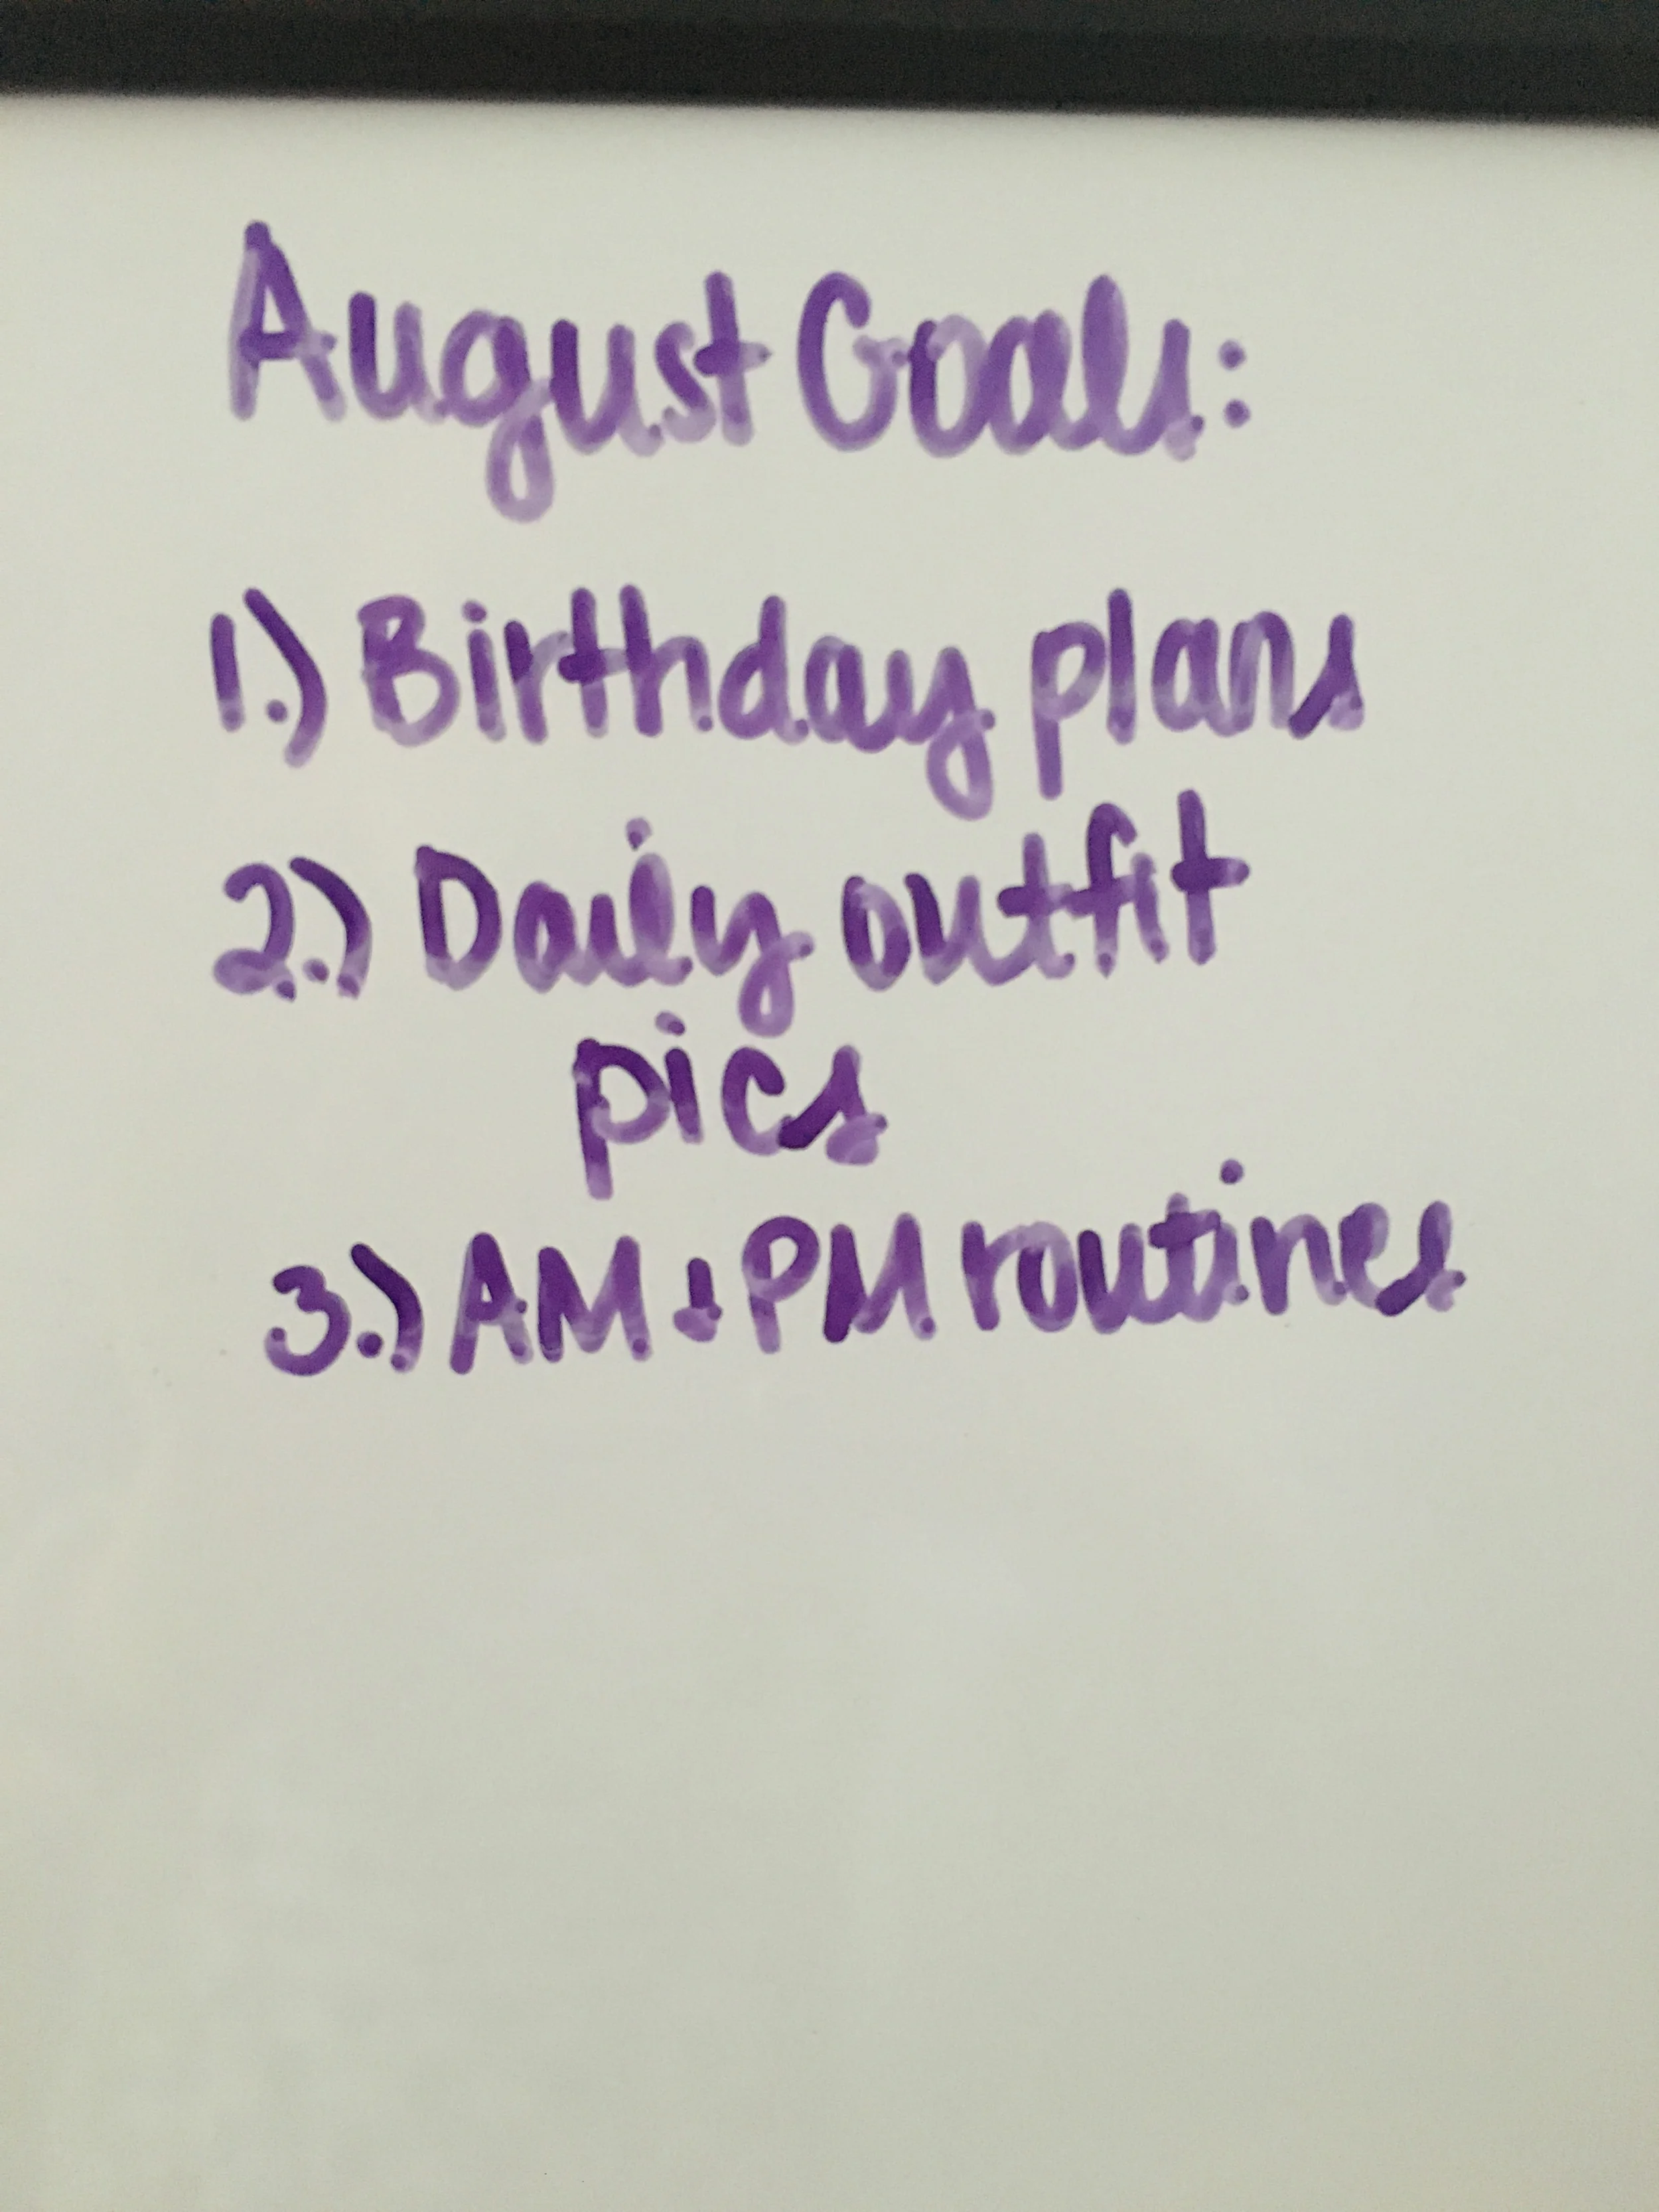 August Goals:
1.) Birthday plans
2.) Daily outfit
pics
3.) AM + PM routines